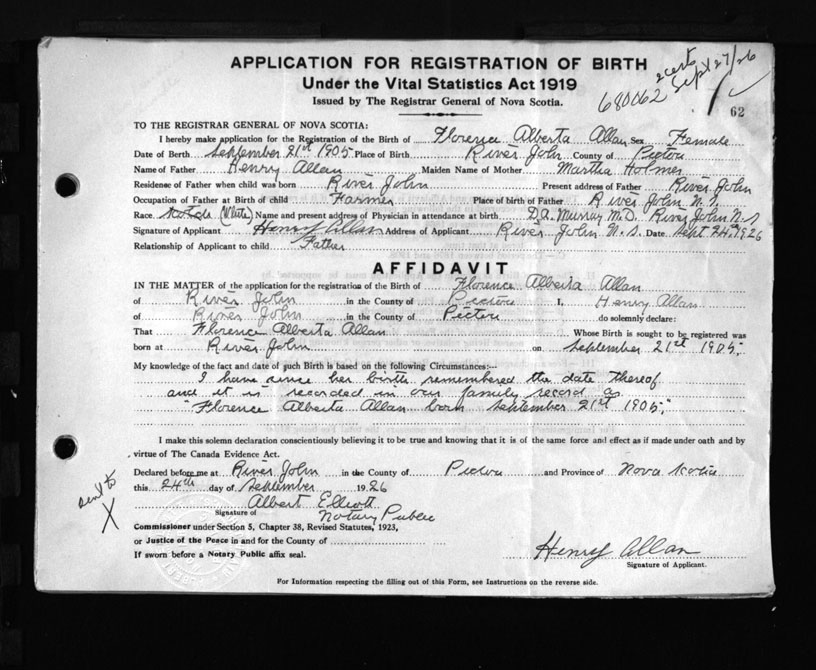 APPLICATION FOR REGISTRATION OF BIRTH
Under the Vital Statistics Act 1919
Issued by The Registrar General of Nova Scotia.
680062 2 certs Sept 27/26
62
TO THE REGISTRAR GENERAL OF NOVA SCOTIA:
I hereby make application for the Registration of the Birth of Florence Alberta Allan Sex Female
Date of Birth September 21st 1905 Place of Birth River John County of Pictou
Name of Father Henry Allan Maiden Name of Mother Martha Holmes
Residense of Father when child was born River John Present address of Father River John
Occupation of Father at Birth of child Farmer Place of birth of Father River John N.S.
Race Scotch (White) Name and present address of Physician in attendance at birth D.A. Murray M.D. River John N.S
Signature of Applicant Henry Allan Address of Applicant River John N.S. Date Sept. 24th 1926
Relationship of Applicant to child Father
AFFIDAVIT
IN THE MATTER of the application for the registration of the Birth of Florence Alberta Allan
of River John in the County of Pictou I, Henry Allan
of River John in the County of Pictou do solemnly declare:
That Florence Alberta Allan Whose Birth is sought to be registered was
born at River John on September 21st 1905.
My knowledge of the fact and date of such Birth is based on the following Circumstances:--
I have since her birth remembered the date thereof
and it is recorded in our family record as
"Florence Alberta Allan born September 21st 1905."
I make this solemn declaration conscientiously believing it to be true and knowing that it is of the same force and effect as if made under oath and by
virtue of The Canada Evidence Act.
Declared before me at River John in the County of Pictou and Province of Nova Scotia
this 24th day of September 1926
sent to X
Albert Elliott
Signature of Notary Public
Commissioner under Section 5, Chapter 38, Revised Statutes, 1923,
or Justice of the Peace in and for the County of
If sworn before a Notary Public affix seal.
Henry Allan
Signature of Applicant.
For Information respecting the filling out of this Form, see Instructions on the reverse side.